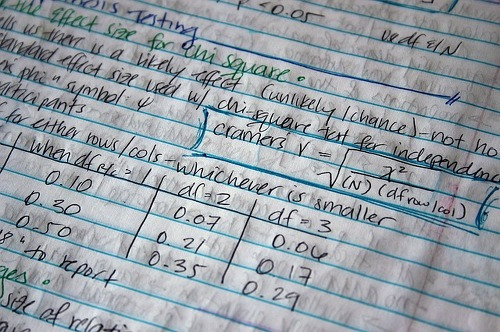 p < 0.05
use df & N
testing
effect size for chi square.
us there is a likely effect (unlikely/chance) - not
standard effect size used w/ chi-square test for independence
"phi" symbol φ
participants
cramer's V = √ x² / (N) (df row/col)
for either rows/cols - whichever is smaller
when df r/c = 1 df = 2 df = 3
0.10 0.07 0.06
0.30 0.21 0.17
0.50 0.35 0.29
" to report
size of